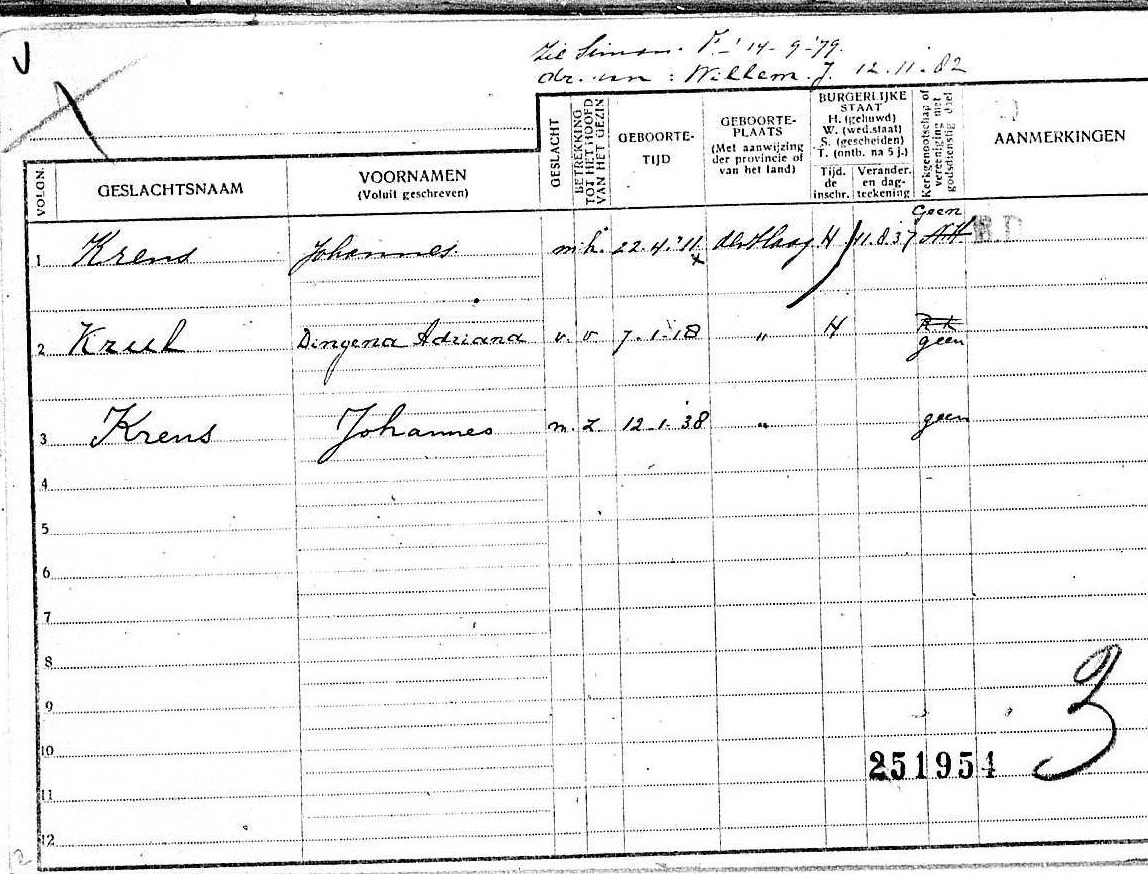 Zie Simon. F. '14-9-'79.
dr. van : Willem. J. 12.11.82
VOLGN.
GESLACHTSNAAM
VOORNAMEN
(Voluit geschreven)
GESLACHT
BETREKKING
TOT HET HOOFD
VAN HET GEZIN
GEBOORTE-
TIJD
GEBOORTE-
PLAATS
(Met aanwijzing
der provincie of
van het land)
BURGERLIJKE
STAAT
H. (gehuwd)
W. (wed.staat)
S. (gescheiden)
T. (ontb. na 5 j.)
Tijd.
de
inschr.
Verander.
en dag-
teekening
Kerkgenootschap of
vereeniging met
godsdienstig doel
AANMERKINGEN
Geen
1 Krens Johannes m. h. 22.4.'11 den Haag H 11.8.37 NH
2 Krul Dingena Adriana v. v 7.1.18 " H R.K.
geen
3 Krens Johannes m. z 12.1.'38 " geen
4
5
6
7
8
9
10
251954
3
11
12